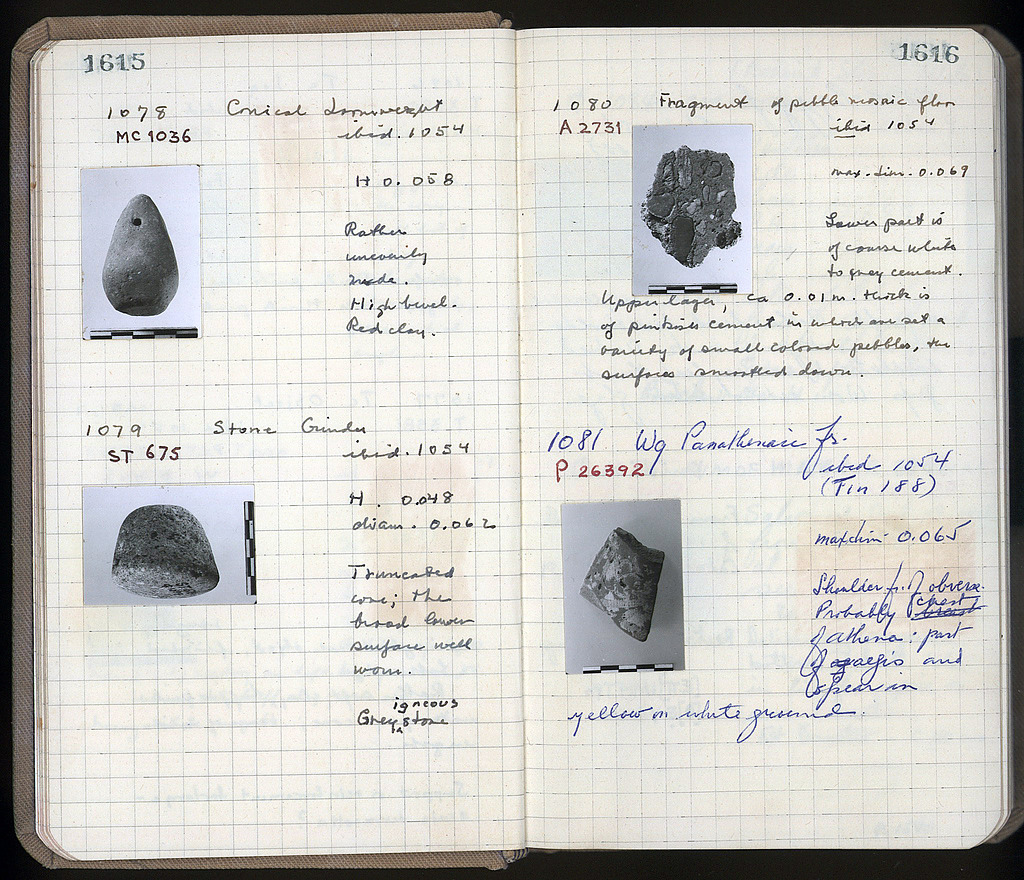 1615
1078 Conical Loomweight
MC 1036 ibid. 1054
H 0.058
Rather
unevenly
made.
High bevel.
Red clay.
1079 Stone Grinder
ST 675 ibid. 1054
H. 0.048
diam. 0.062
Truncated
cone; the
broad lower
surface well
worn.
igneous
Grey stone
1616
1080 Fragment of pebble mosaic floor
A 2731 ibid 1054
max. dim. 0.069
Lower part is
of coarse white
to grey cement.
Upper layer, ca 0.01 m. thick is
of pinkish cement in which are set a
variety of small colored pebbles, the
surfaces smoothed down.
1081 Wg Panathenaic fr.
P 26392 ibid 1054
(Tin 188)
max dim 0.065
Shoulder fr. of obverse.
Probably chest breast
of Athena: part
of aegis and
spear in
yellow on white ground.